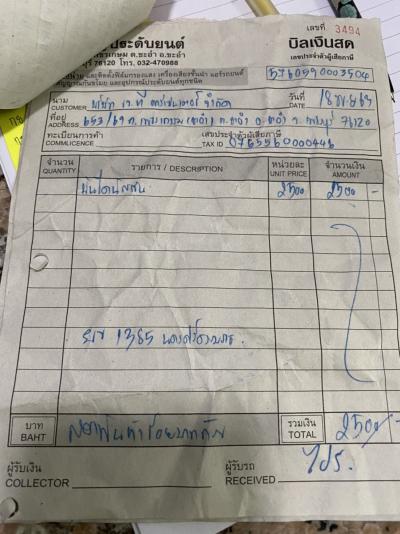 เลขที่ 3494
ประดับยนต์
บิลเงินสด
เพชรเกษม ต.ชะอำ อ.ชะอำ
บุรี 76120 โทร. 032-470988
เลขประจำตัวผู้เสียภาษี
และติดตั้งฟิล์มกรองแสง เครื่องเสียงชั้นนำ แอร์รถยนต์
สัญญาณกันขโมย และอุปกรณ์ประดับยนต์ทุกชนิด
3760590003504
นาม
CUSTOMER บริษัท เจ.ที
จำกัด
วันที่
DATE 18
63
ที่อยู่
ADDRESS 653/69 ถ.เพชรเกษม (ชะอำ) ต.ชะอำ อ.ชะอำ จ.เพชรบุรี 76120
ทะเบียนการค้า
COMMLICENCE
เลขประจำตัวผู้เสียภาษี
TAX ID 0765560000446
จำนวน
QUANTITY
รายการ / DESCRIPTION
หน่วยละ
UNIT PRICE
จำนวนเงิน
AMOUNT
2500 2500 -
1365
บาท
BAHT สองพันห้าร้อยบาทถ้วน
รวมเงิน
TOTAL 2500 -
ผู้รับเงิน
COLLECTOR
ผู้รับรถ
RECEIVED